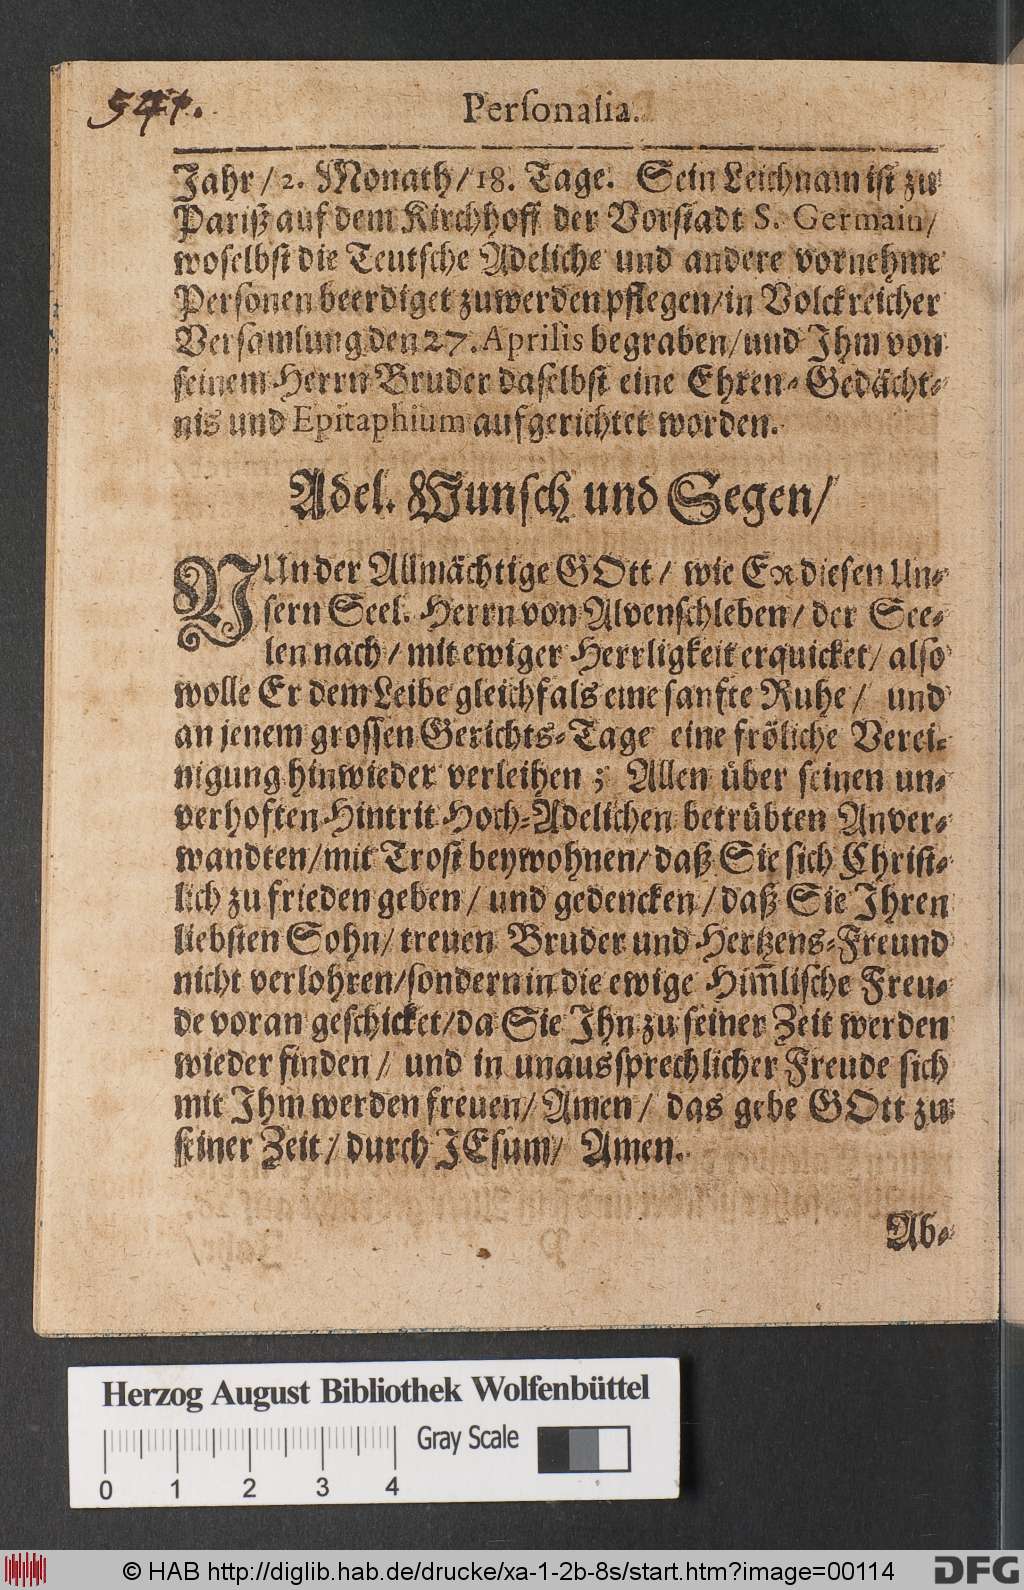 541.
Personalia.
Jahr / 2. Monath / 18. Tage. Sein Leichnam ist zu
Pariß auf dem Kirchhoff der Vorstadt S. Germain /
woselbst die Teutsche Adeliche und andere vornehme
Personen beerdiget zuwerden pflegen / in Volckreicher
Versamlung den 27. Aprilis begraben / und Ihm von
seinem Herrn Bruder daselbst eine Ehren-Gedächt-
nis und Epitaphium aufgerichtet worden.
Adel. Wunsch und Segen /
NUn der Allmächtige GOtt / wie Er diesen Un-
sern Seel. Herrn von Alvenschleben / der See-
len nach / mit ewiger Herrligkeit erquicket / also
wolle Er dem Leibe gleichfals eine sanfte Ruhe / und
an jenem grossen Gerichts-Tage eine fröliche Verei-
nigung hinwieder verleihen ; Allen über seinen un-
verhoften Hintrit Hoch-Adelichen betrübten Anver-
wandten / mit Trost beywohnen / daß Sie sich Christ-
lich zu frieden geben / und gedencken / daß Sie Ihren
liebsten Sohn / treuen Bruder und Hertzens-Freund
nicht verlohren / sondern in die ewige Him̅lische Freu-
de voran geschicket / da Sie Ihn zu seiner Zeit werden
wieder finden / und in unaussprechlicher Freude sich
mit Ihm werden freuen / Amen / das gebe GOtt zu
seiner Zeit / durch JEsum / Amen.
Ab-
Herzog August Bibliothek Wolfenbüttel
Gray Scale
0 1 2 3 4
© HAB http://diglib.hab.de/drucke/xa-1-2b-8s/start.htm?image=00114
DFG